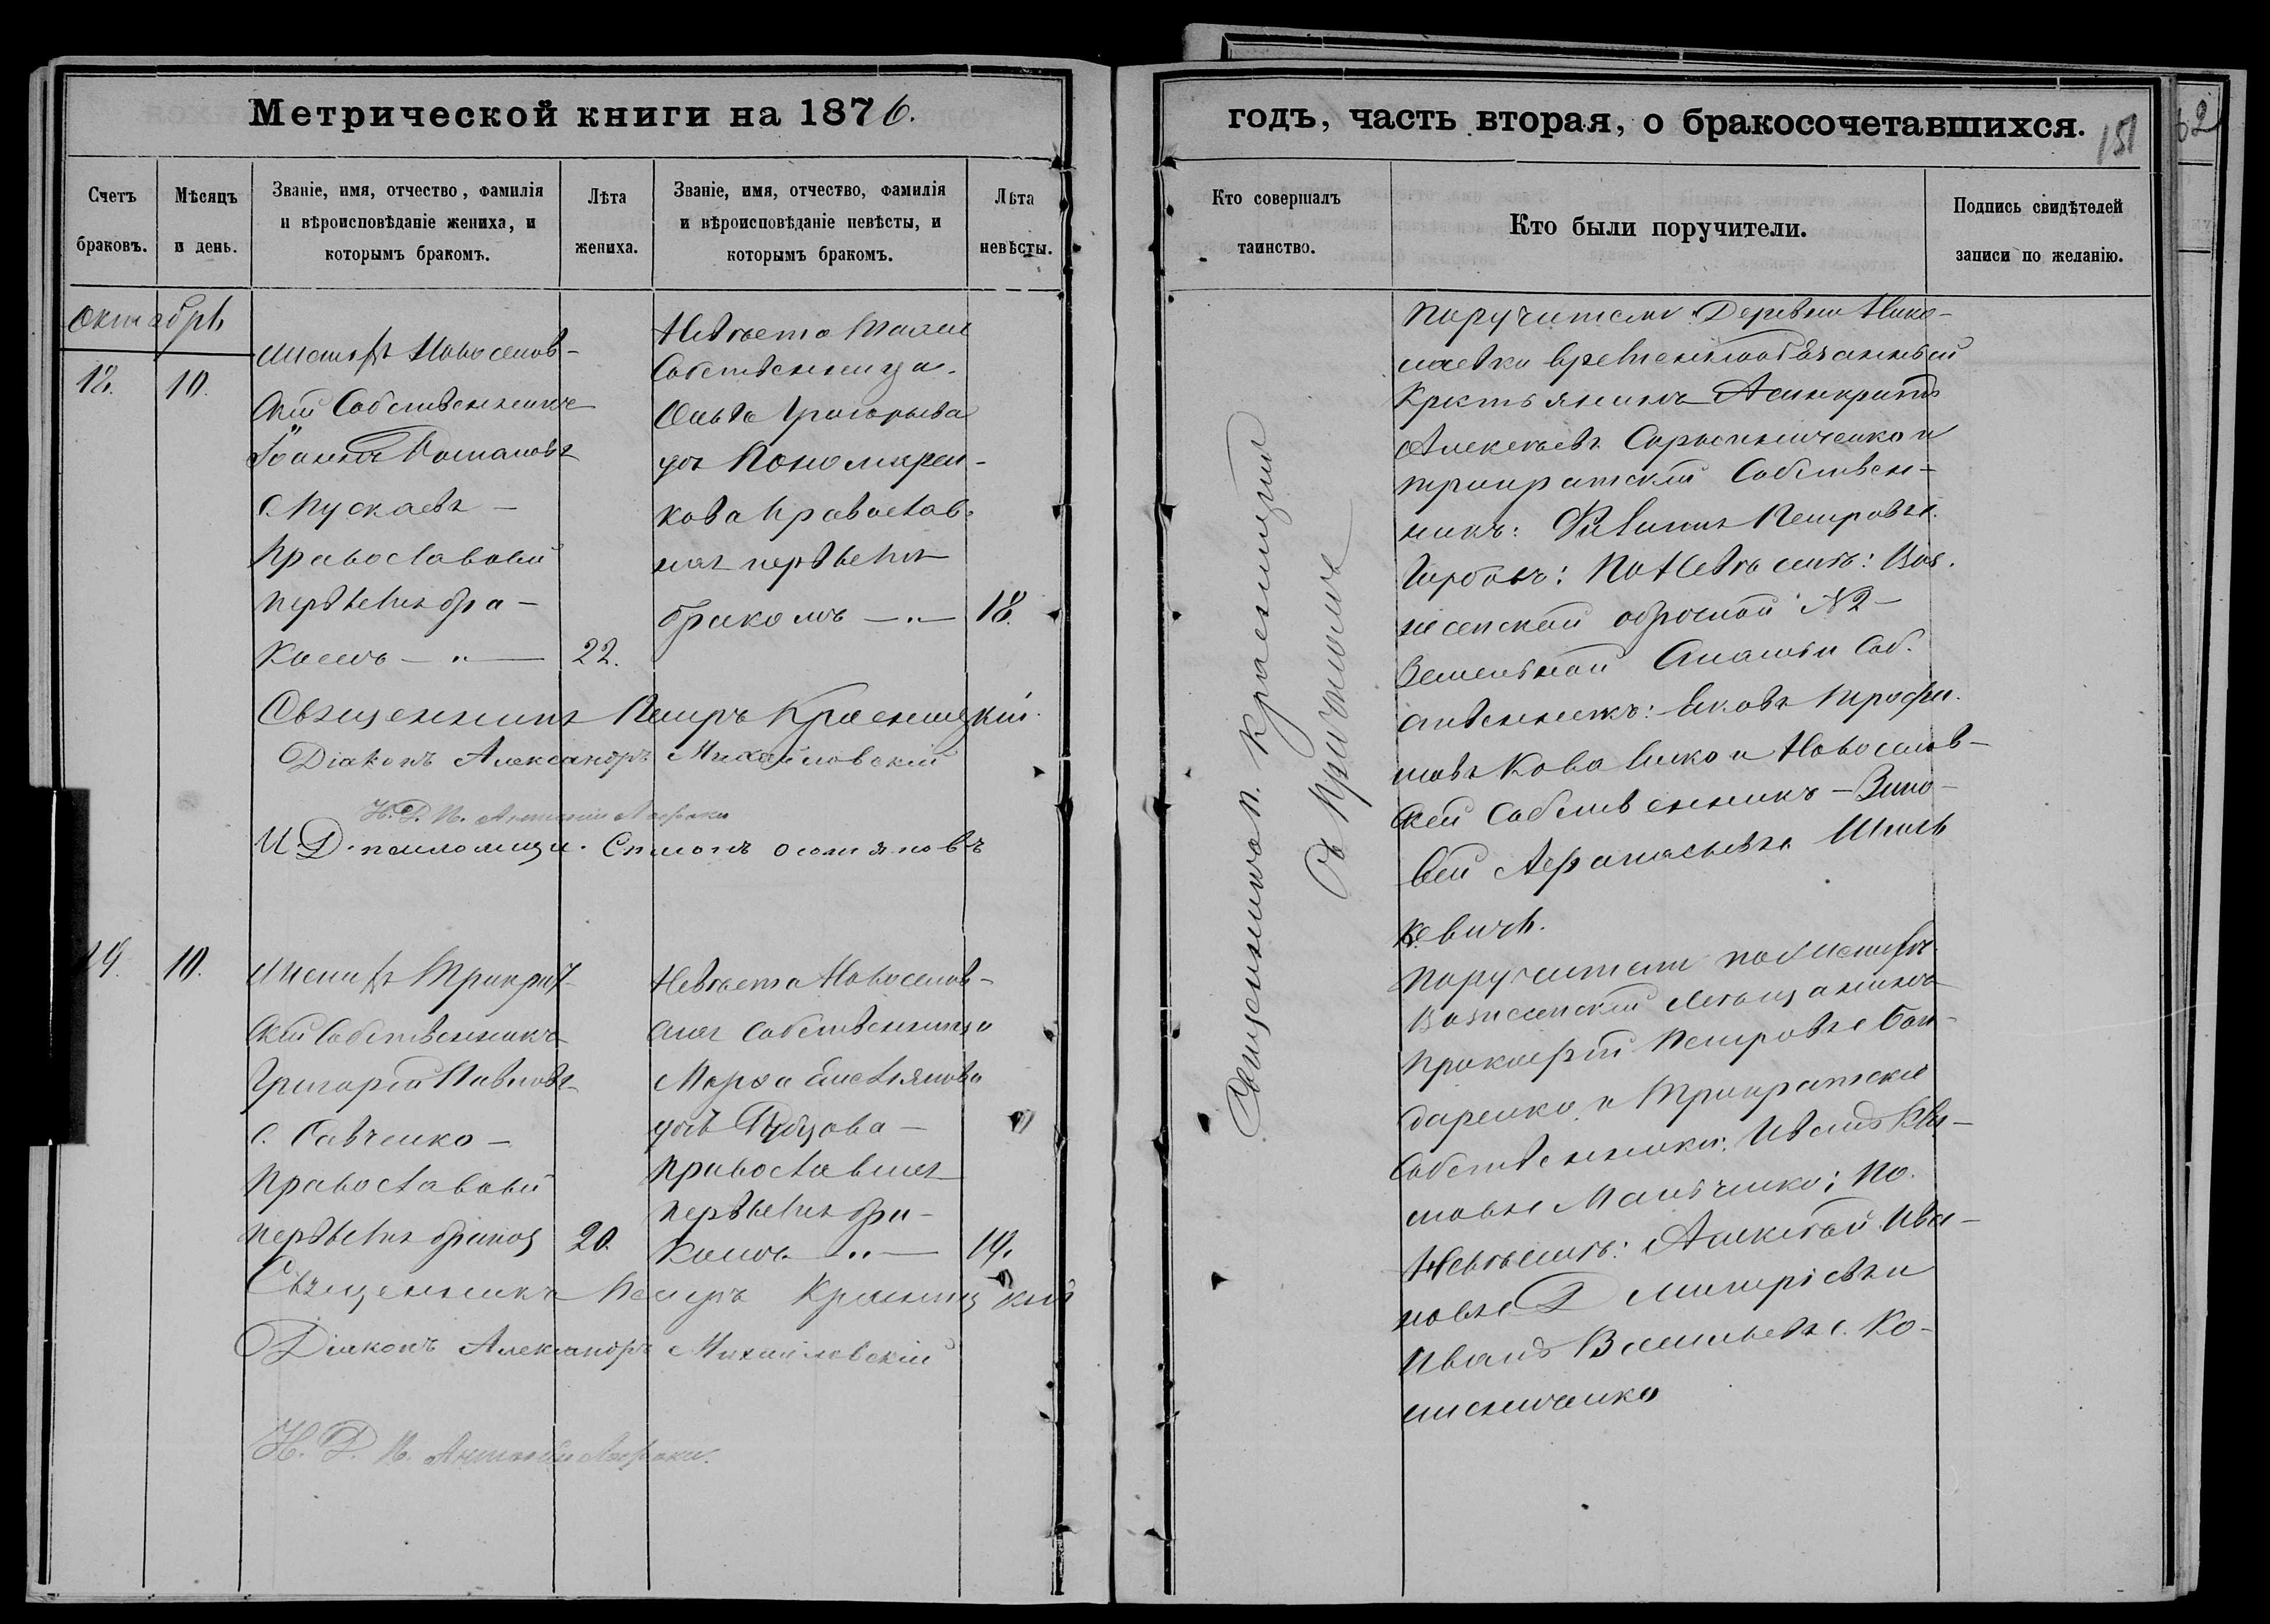 Метрической книги на 1876.
Счетъ браковъ.
Мѣсяцъ и день.
Званіе, имя, отчество, фамилія
и вѣроисповѣданіе жениха, и
которымъ бракомъ.
Лѣта жениха.
Званіе, имя, отчество, фамилія
и вѣроисповѣданіе невѣсты, и
которымъ бракомъ.
Лѣта невѣсты.
Октябрь
18.
10.
Новоселов-
скій Собственникъ
Іоаннъ Романовъ
с. Пускаевъ —
Православный
первымъ бра-
комъ — " —
22.
Невѣста Таяже
Собственница
Ольга Григорьева
дочь Пономарен-
кова Православ-
ная первымъ
бракомъ — " —
18.
Священникъ Петръ Красницкій.
Діаконъ Александръ Михайловскій
И. Д. П. Антоній
И. Д. псаломщи. Симонъ
19.
10.
Трикрат-
скій Собственникъ
Григорій Павловъ
с. Савченко —
Православный
первымъ бракомъ
20.
Невѣста Новоселов-
ская Собственница
Марѳа Емельянова
дочь Рубцова —
Православная
первымъ бра-
комъ — " —
19.
Священникъ Петръ Красницкій
Діаконъ Александръ Михайловскій
И. Д. П. Антоній
годъ, часть вторая, о бракосочетавшихся.
151
62
Кто совершалъ таинство.
Кто были поручители.
Подпись свидѣтелей
записи по желанію.
Священникъ П. Красницкій
Съ Причтомъ
Поручители Деревни Нико-
лаевки временнообязанный
Крестьянинъ Асинкритъ
Алексѣевъ и
трикратскій Собствен-
никъ: Филипъ Петровъ с.
Щербань: По Невѣстѣ: Воз-
несенской оброчной №2
Земельной Собс-
твенникъ: Яковъ Трофи-
мовъ Коваленко и Новоселов-
скій Собственникъ — Зино-
вей Афанасьевъ с. Шиль
кевичъ.
Поручители
Вознесенскій мѣщанинъ
Прокофій Петровъ с. Бон-
даренко и Трикратскій
Собственникъ: Иванъ Кли-
мовъ с. Мальченко; По
Невѣстѣ: Алексѣй Ива-
новъ с. Дмитріевъ и
Иванъ Васильевъ с. Ко-
лисниченко